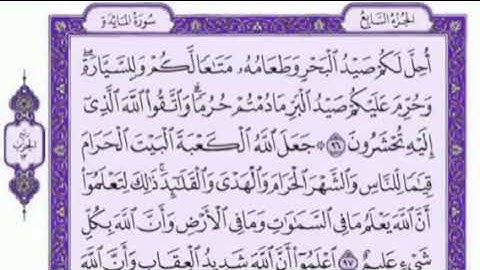 سُورَةُ المَائِدَةِ
الجُزْءُ السَّابِعُ
أُحِلَّ لَكُمْ صَيْدُ الْبَحْرِ وَطَعَامُهُ مَتَاعًا لَّكُمْ وَلِلسَّيَّارَةِ ۖ
وَحُرِّمَ عَلَيْكُمْ صَيْدُ الْبَرِّ مَا دُمْتُمْ حُرُمًا ۗ وَاتَّقُوا اللَّهَ الَّذِي
إِلَيْهِ تُحْشَرُونَ ٩٦ ۞ جَعَلَ اللَّهُ الْكَعْبَةَ الْبَيْتَ الْحَرَامَ
قِيَامًا لِّلنَّاسِ وَالشَّهْرَ الْحَرَامَ وَالْهَدْيَ وَالْقَلَائِدَ ۚ ذَٰلِكَ لِتَعْلَمُوا
أَنَّ اللَّهَ يَعْلَمُ مَا فِي السَّمَاوَاتِ وَمَا فِي الْأَرْضِ وَأَنَّ اللَّهَ بِكُلِّ
شَيْءٍ عَلِيمٌ ٩٧ اعْلَمُوا أَنَّ اللَّهَ شَدِيدُ الْعِقَابِ وَأَنَّ اللَّهَ